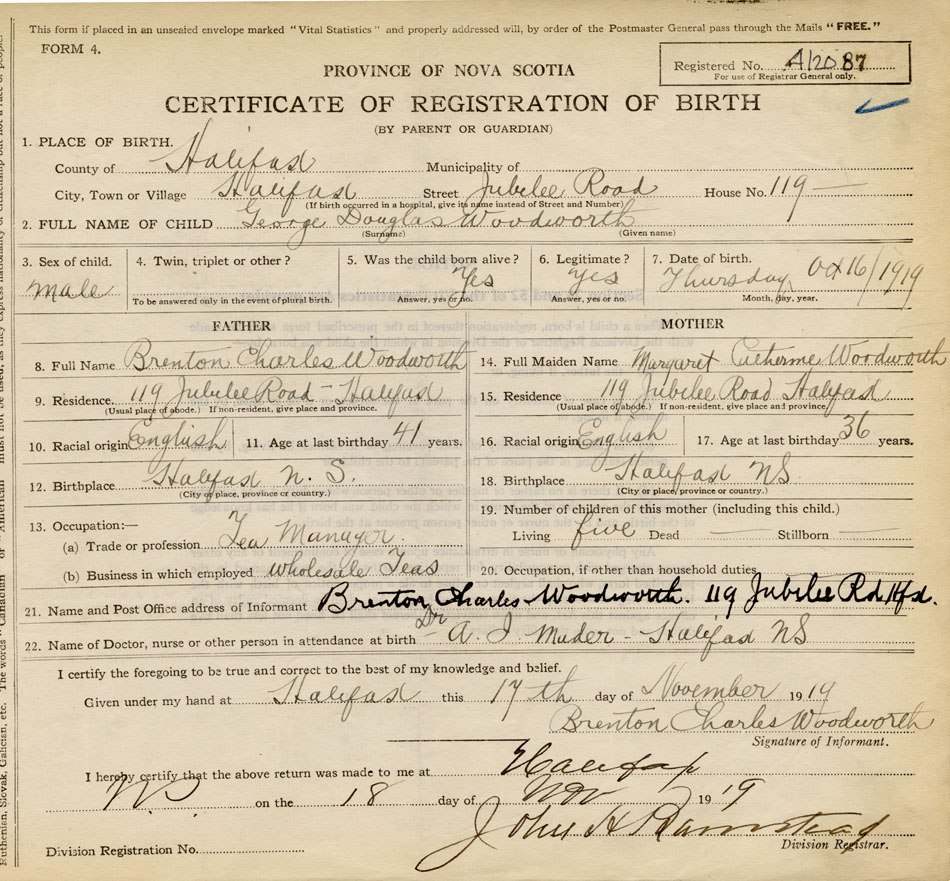 This form if placed in an unsealed envelope marked "Vital Statistics" and properly addressed will, by order of the Postmaster General pass through the Mails "FREE."
FORM 4.
Registered No. A12087
For use of Registrar General only.
PROVINCE OF NOVA SCOTIA
CERTIFICATE OF REGISTRATION OF BIRTH
(BY PARENT OR GUARDIAN)
1. PLACE OF BIRTH.
County of Halifax Municipality of
City, Town or Village Halifax Street Jubilee Road House No. 119 —
(If birth occurred in a hospital, give its name instead of Street and Number)
2. FULL NAME OF CHILD George Douglas Woodworth
(Surname) (Given name)
3. Sex of child. 4. Twin, triplet or other ? 5. Was the child born alive ? 6. Legitimate ? 7. Date of birth.
male Yes Yes Thursday, Oct 16/1919
To be answered only in the event of plural birth. Answer, yes or no. Answer, yes or no. Month, day, year.
FATHER MOTHER
8. Full Name Brenton Charles Woodworth 14. Full Maiden Name Margaret Catherine Woodworth
9. Residence. 119 Jubilee Road - Halifax 15. Residence 119 Jubilee Road Halifax
(Usual place of abode.) If non-resident, give place and province. (Usual place of abode.) If non-resident, give place and province.
10. Racial origin English 11. Age at last birthday 41 years. 16. Racial origin English 17. Age at last birthday 36 years.
12. Birthplace Halifax N. S. 18. Birthplace Halifax NS
(City or place, province or country.) (City or place, province or country.)
13. Occupation:— 19. Number of children of this mother (including this child.)
(a) Trade or profession Tea Manager. Living five Dead — Stillborn —
(b) Business in which employed wholesale Teas 20. Occupation, if other than household duties
21. Name and Post Office address of Informant Brenton Charles Woodworth. 119 Jubilee Rd Hfx.
22. Name of Doctor, nurse or other person in attendance at birth Dr - A. I. Mader - Halifax NS
I certify the foregoing to be true and correct to the best of my knowledge and belief.
Given under my hand at Halifax this 17th day of November 1919
Brenton Charles Woodworth
Signature of Informant.
I hereby certify that the above return was made to me at Halifax
NS on the 18 day of Nov 1919
John H Barnstead
Division Registrar.
Division Registration No.